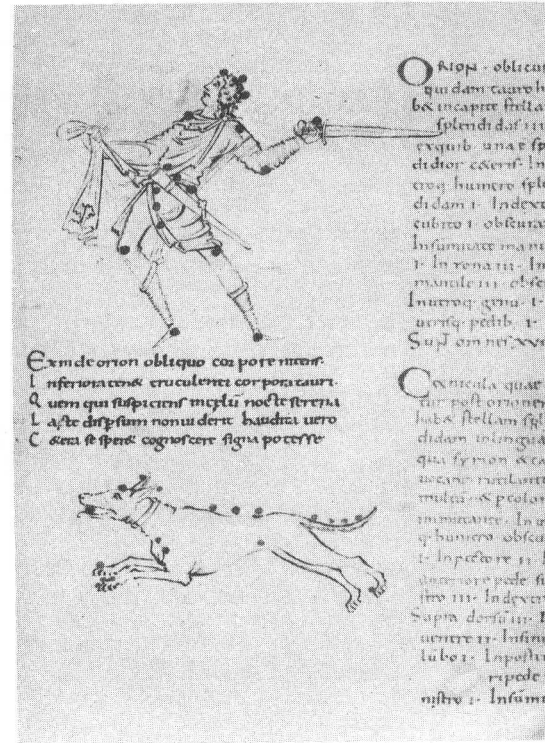 Exinde orion obliquo corpore nitens·
Inferiora tenet truculenti corpori tauri·
Quem qui suspiciens incęlū nocte serena
Late dispsum nonuiderit haudita uero
Cetera se speret cognoscere signa potesse
ORION · oblicu
quidam tauro h
bet incapite stella
splendidas iii
exquib· una e sp
didior ceteris· In
troq humero sple
didam i· Indext
cubito i· obscura
Insumitate manu
i· In zona iii· In
mantile iii· obsc
Inutroq genu· i·
utrisq· pedib· i·
omnes· xvi
Canicula quae
tur post orione
habet stellam spl
didam inlingua
qua syrion & ca
uocant
multū & ptolom
inmutante· In u
q· humero obscu
i· Inpectore ii· I
anteriore pede si
stro iii· Indextr
Supra dorsū iii· I
uentre ii· Insini
lūbo i· Inposteri
ripede
nistro i· Insūm